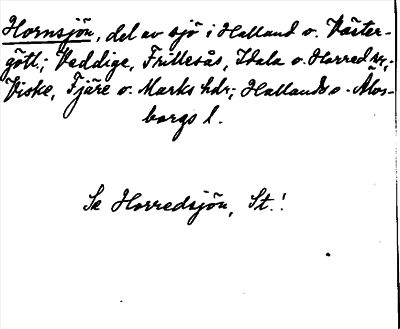 Hornsjön, del av sjö i Halland o. Väster-
götl.; Veddige, Frillesås, Idala o. Horred snr;
Viske, Fjäre o. Marks hdr; Hallands o. Älvs-
borgs l.
Se Horredsjön, St.!